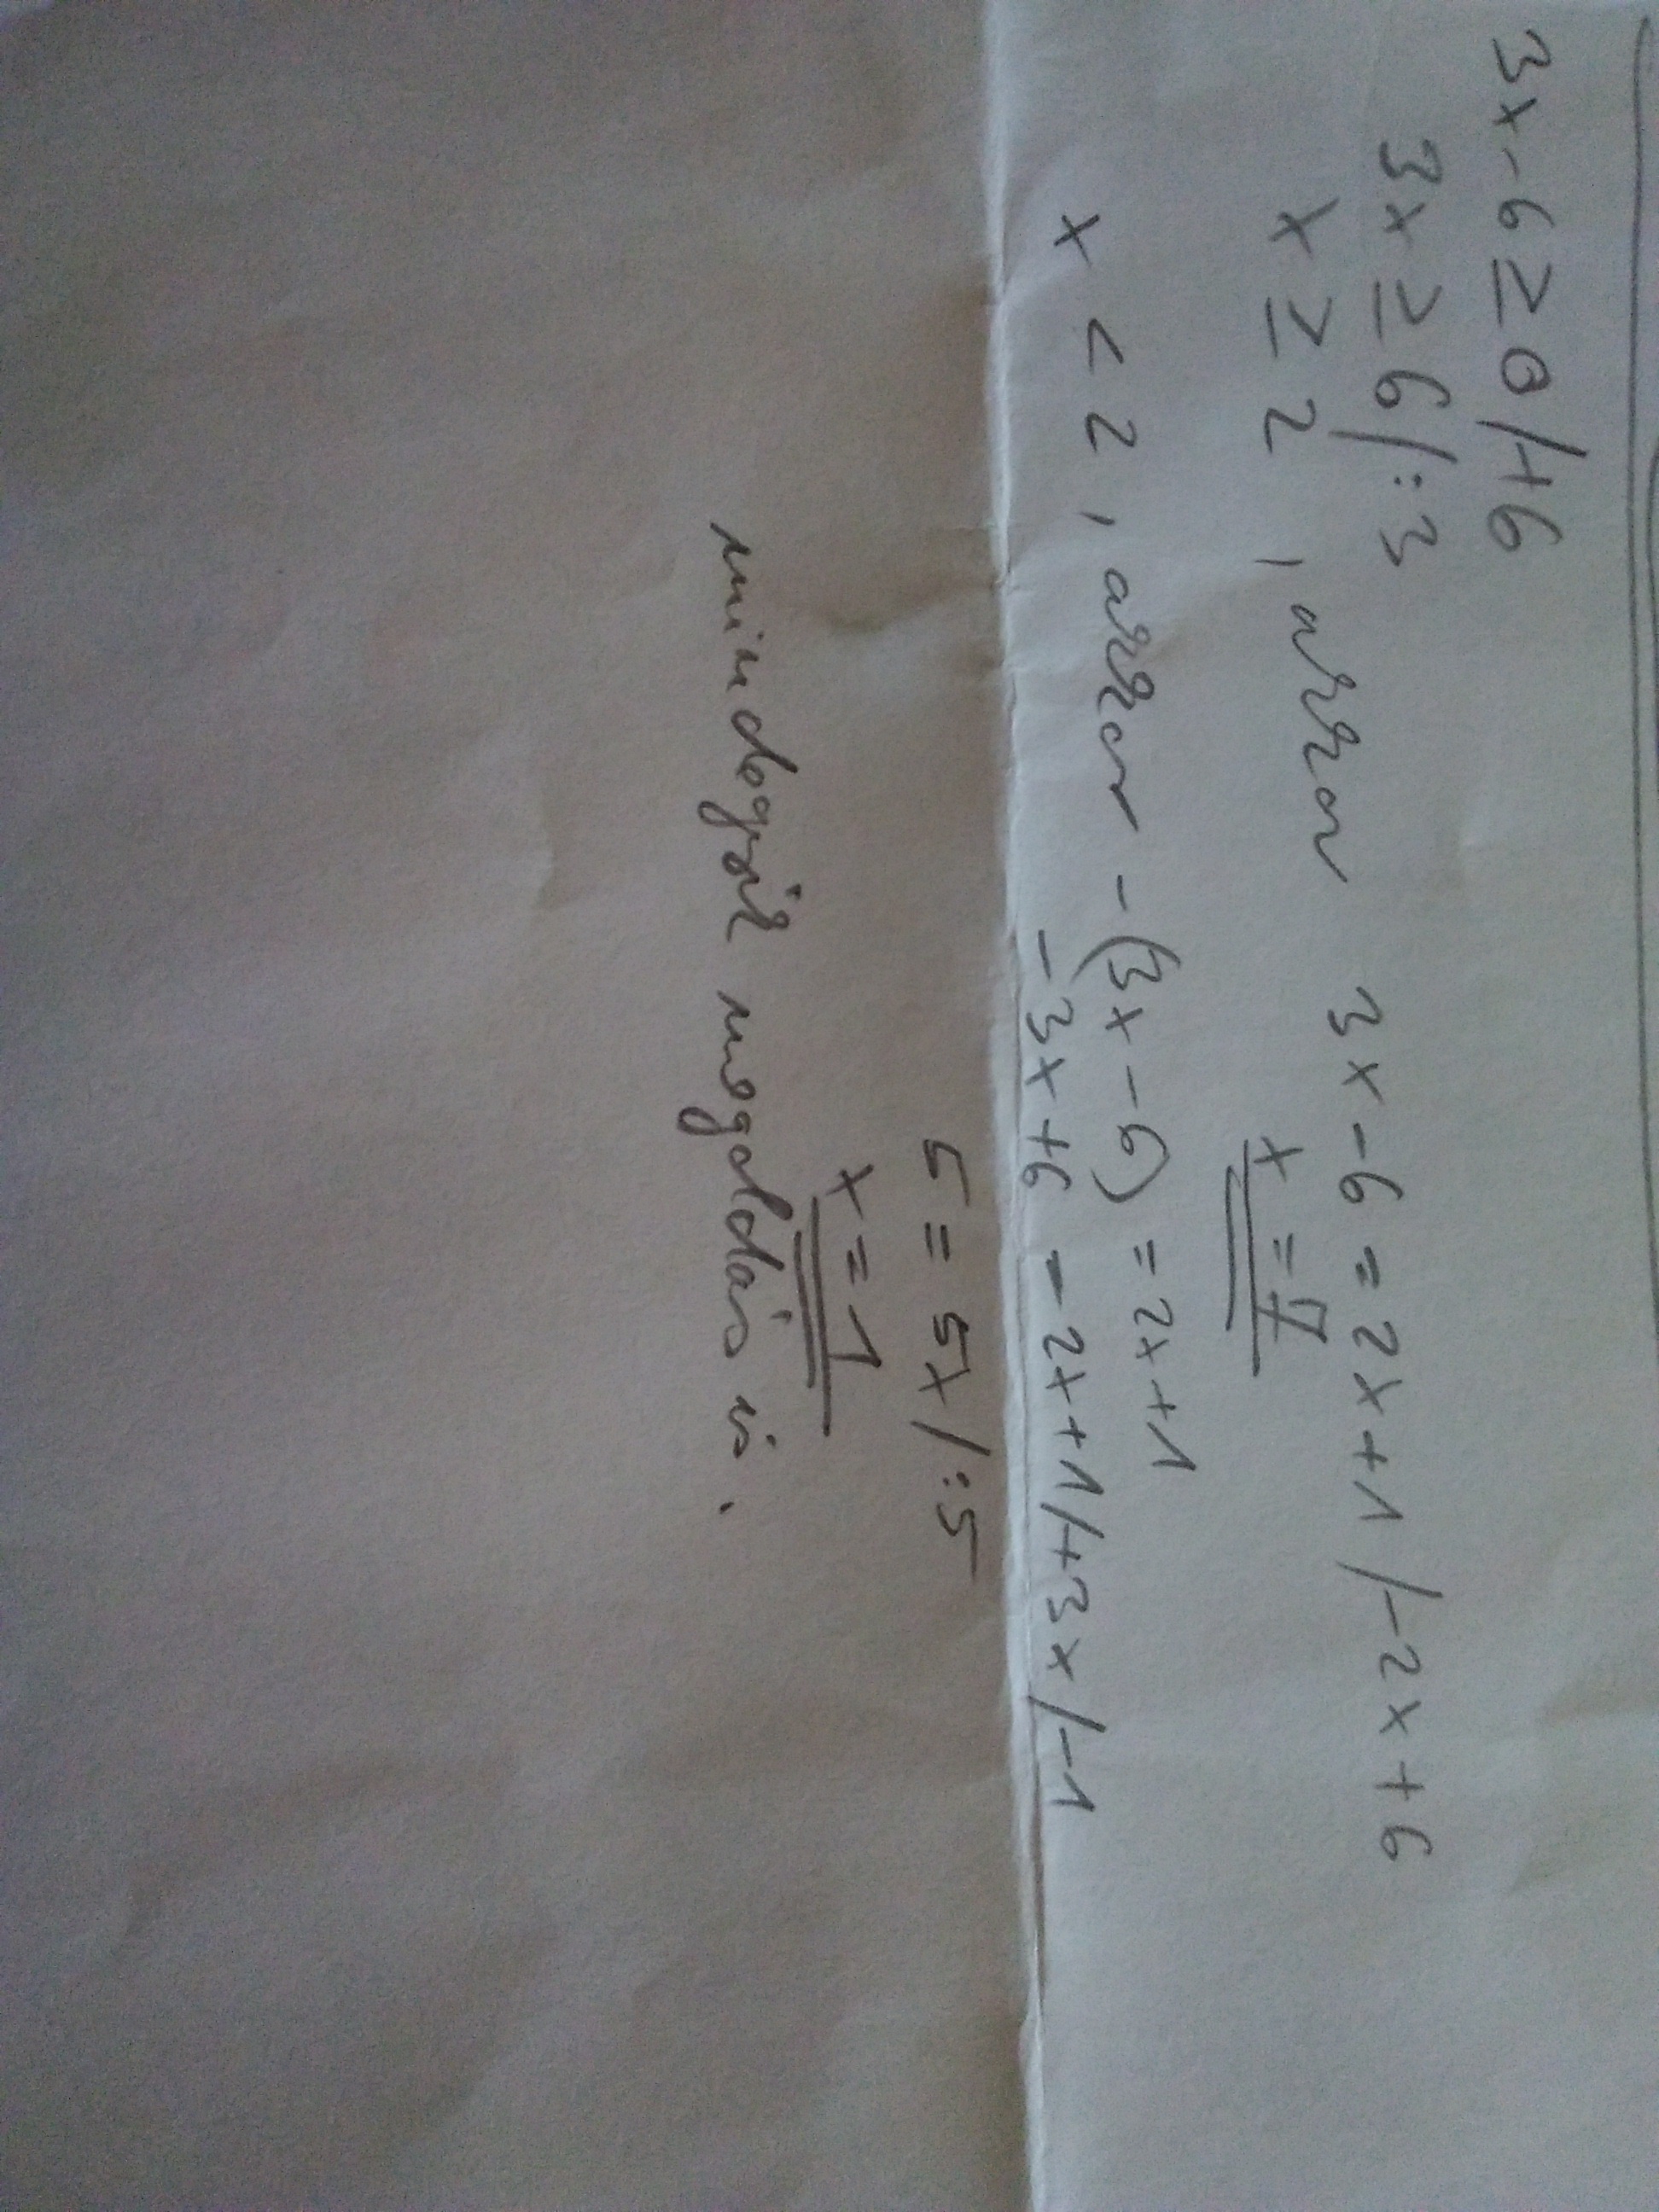 3x-6≥0/+6
3x≥6/:3
x≥2, akkor 3x-6=2x+1/-2x+6
x=7
x<2, akkor -(3x-6)=2x+1
-3x+6=2x+1/+3x/-1
5=5x/:5
x=1
mindegyik megoldás is.